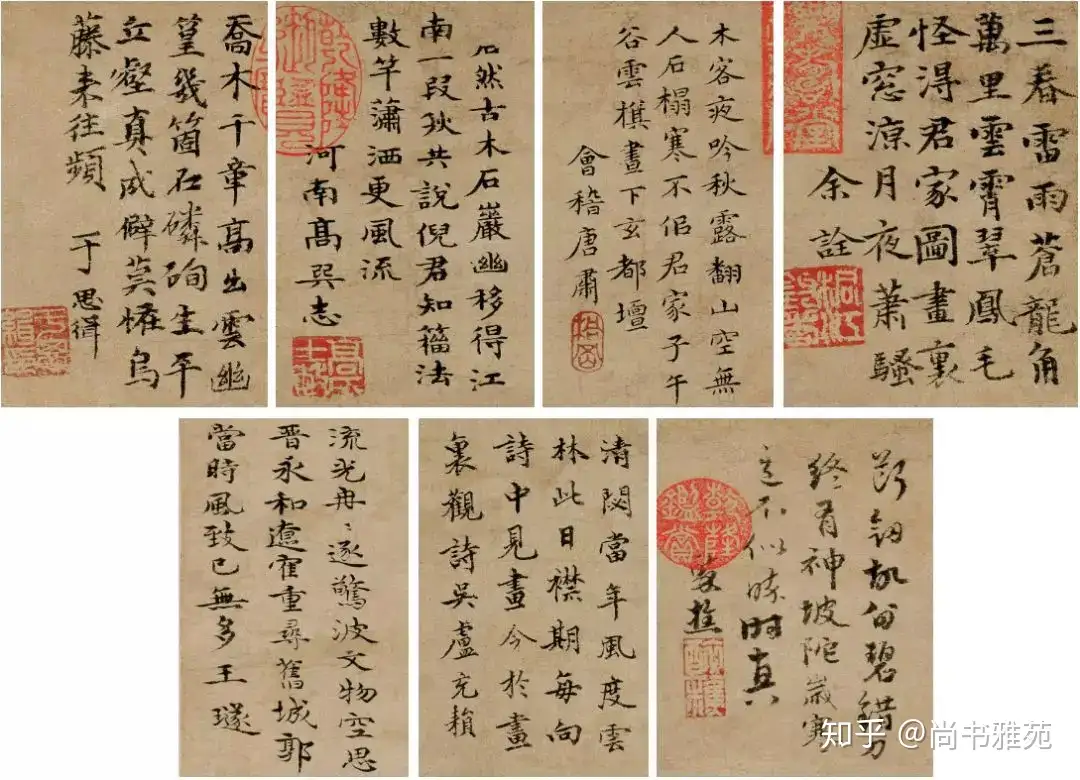 三春雷雨蒼龍角
萬里雲霄翠鳳毛
怪得君家圖畫裏
虚窓凉月夜蕭騷
余詮
木客夜吟秋露翻山空無
人石榻寒不侣君家子午
谷雲畫下玄都壇
會稽唐肅
然古木石巖幽移得江
南一段秋共說倪君知籀法
數竿瀟洒更風流
河南高巽志
喬木千章高出雲幽
篁幾箇石磷峋生平
丘壑真成僻莫怪烏
藤来往頻 于思緝
碧錯刀
終有神坡陀歲寒
意不似
樵
乾隆鑑賞
清閟當年風度雲
林此日襟期每向
詩中見畫今於畫
裏觀詩吳盧充
流光冉〻逐驚波文物空思
晋永和遼寉重尋舊城郭
當時風致已無多王璲
知乎 @尚书雅苑